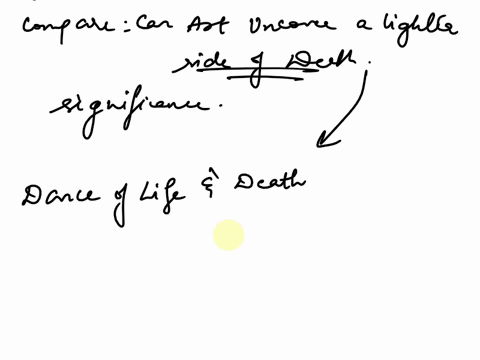 Compare: Can Art Uncover a lighter
side of Death.
significance.
Dance of Life & Death